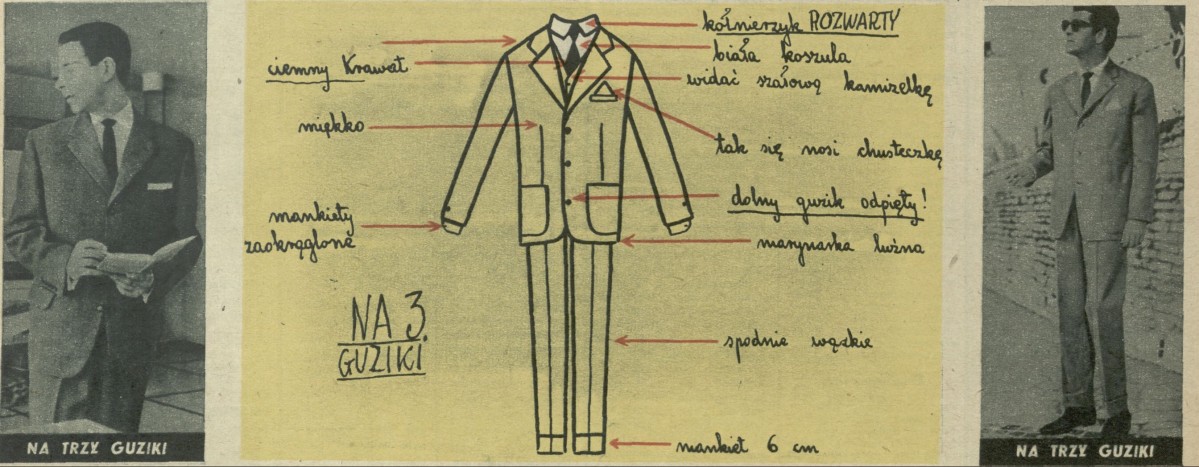 kołnierzyk ROZWARTY
biała koszula
ciemny krawat
widać szalową kamizelkę
miękko
tak się nosi chusteczkę
dolny guzik odpięty!
mankiety
zaokrąglone
marynarka luźna
NA 3.
GUZIKI
spodnie wązkie
mankiet 6 cm
NA TRZY GUZIKI
NA TRZY GUZIKI